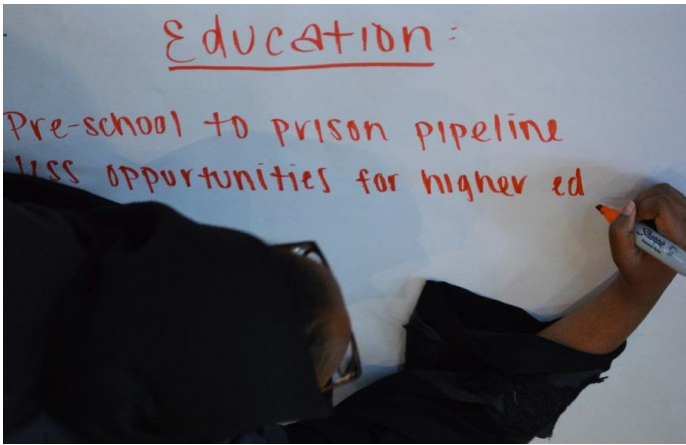 Education:
Pre-school to prison pipeline
less oppurtunities for higher ed
Sharpie